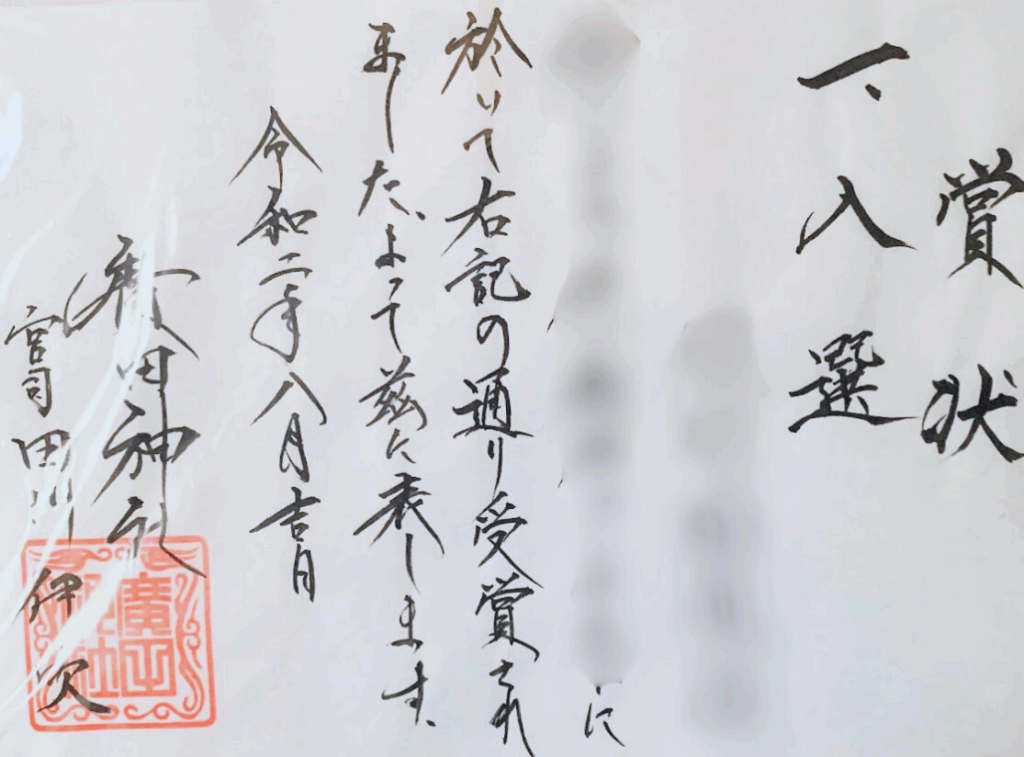 賞状
一、入選
に
於いて右記の通り受賞され
ました、よって茲に表します、
令和二年八月吉日
廣田神社
宮司 田川伊吹